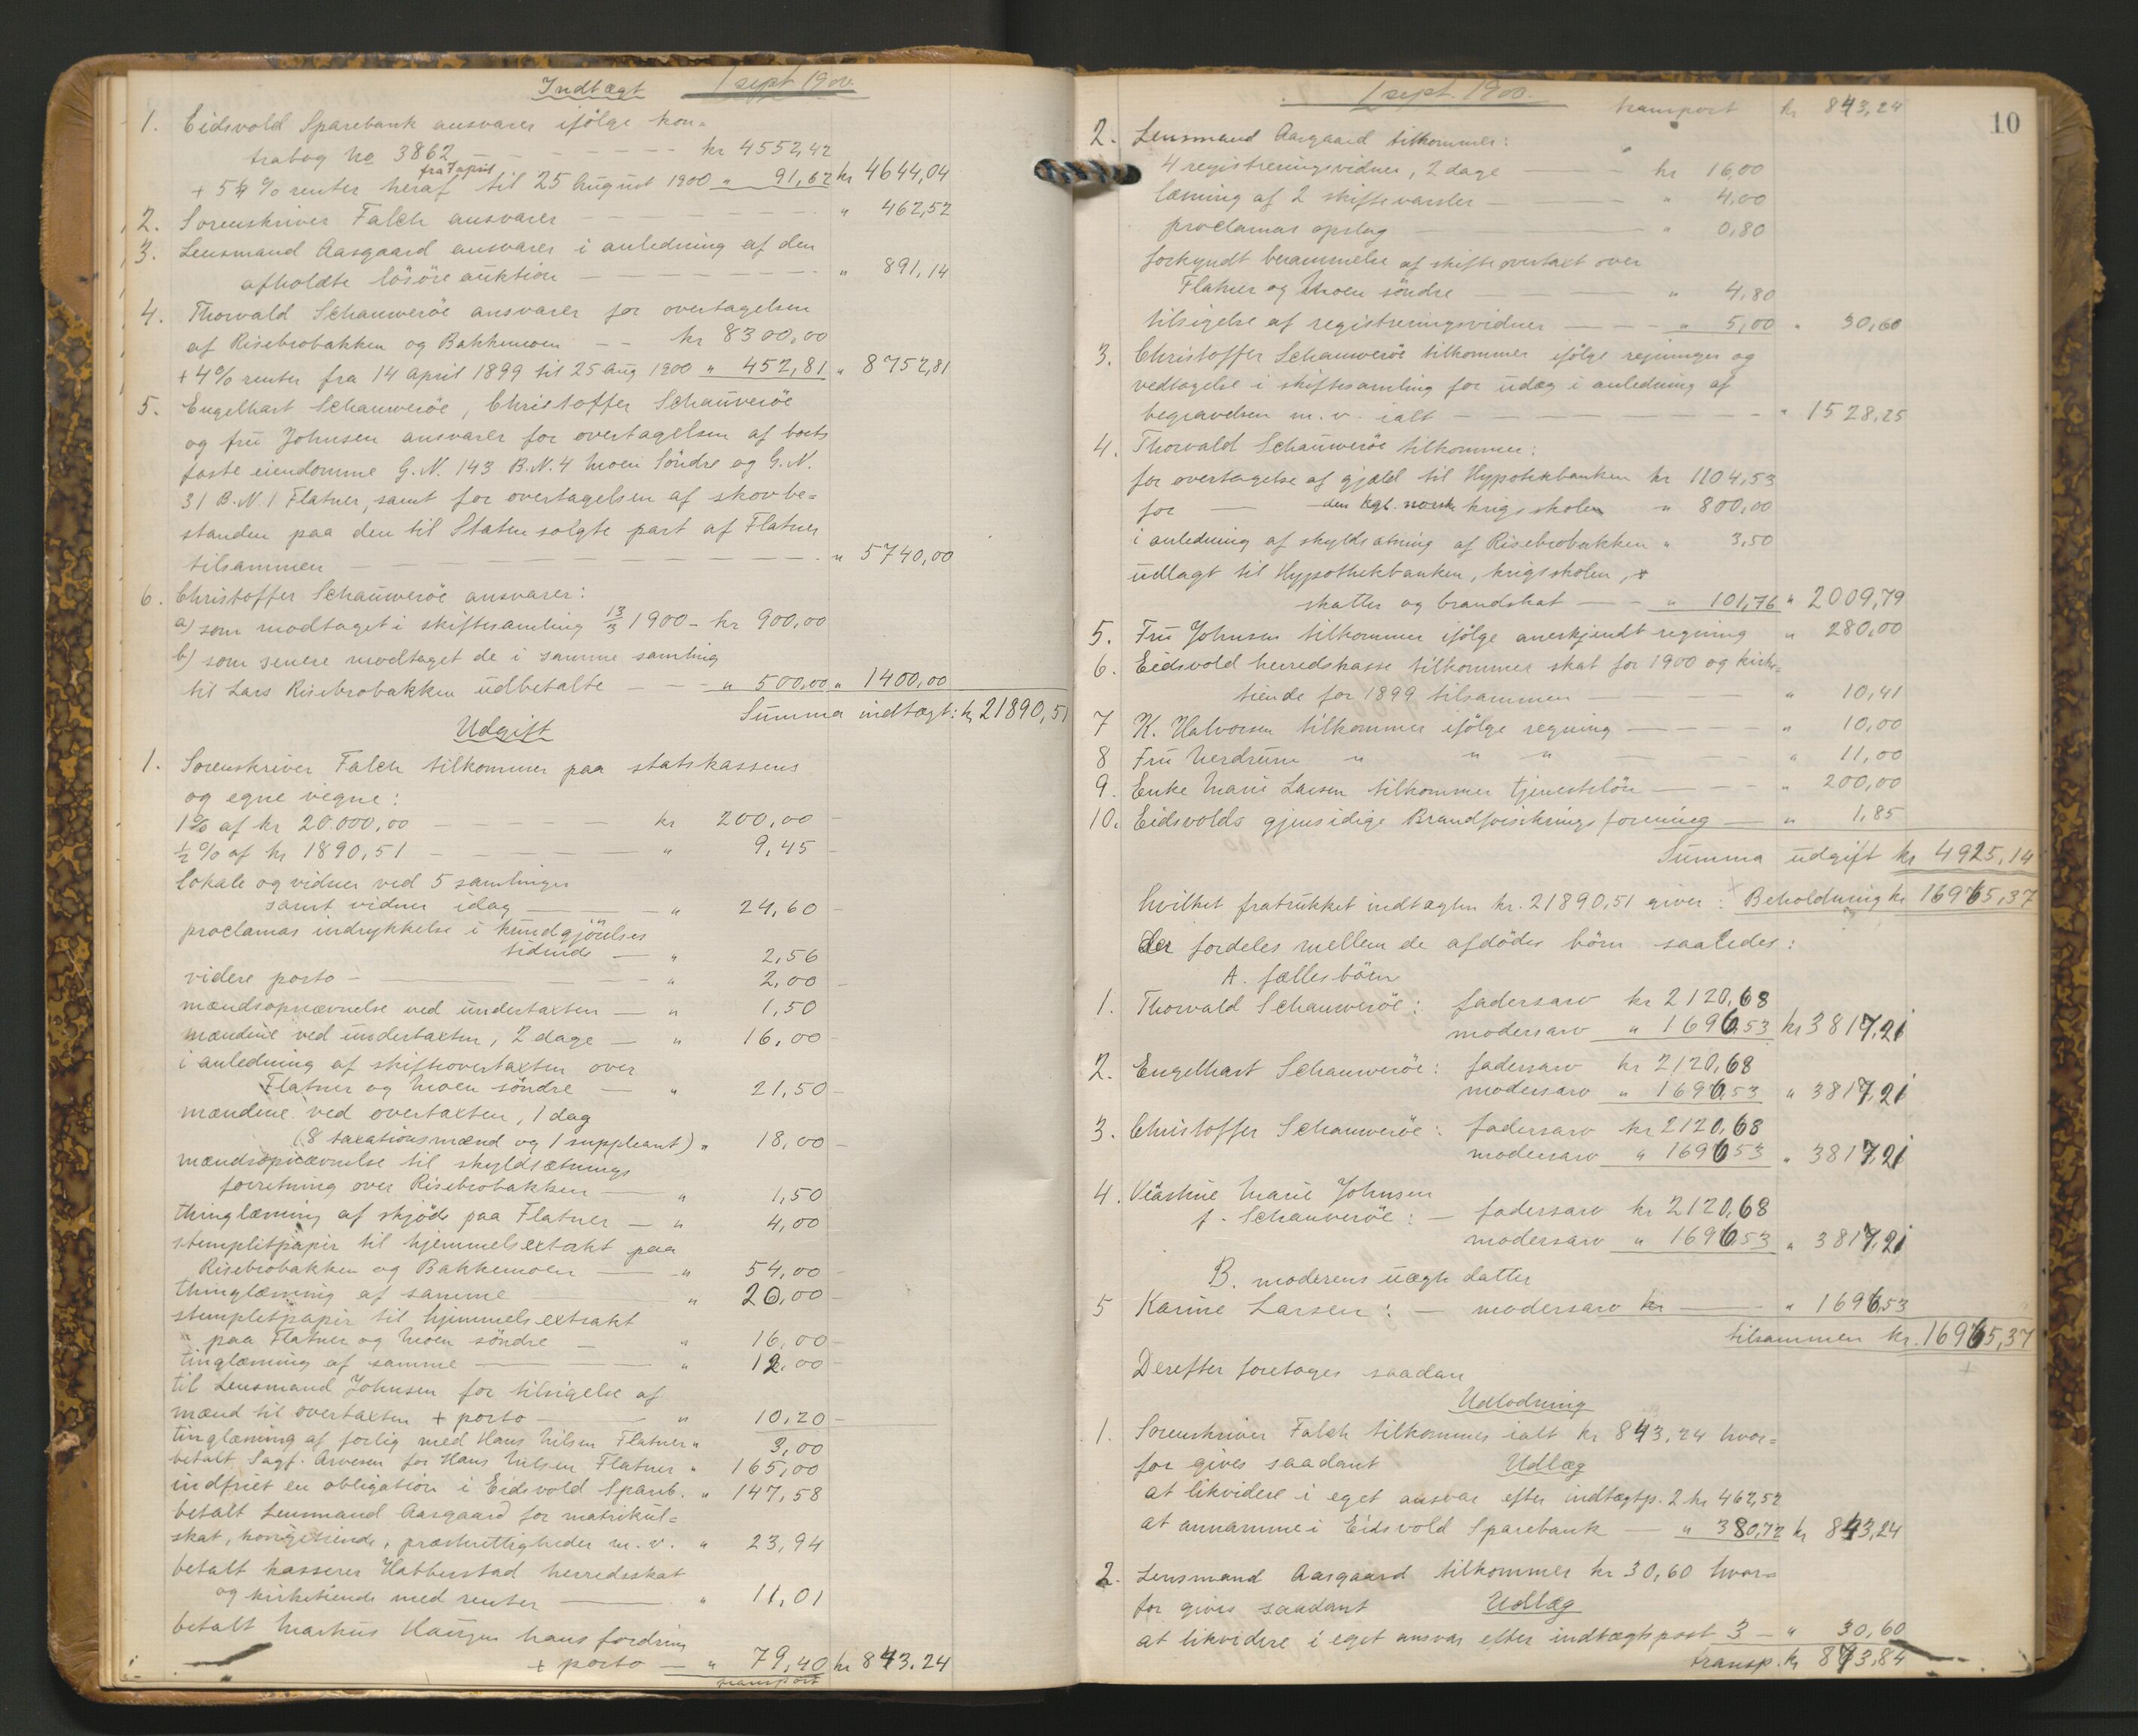 Indtægt 1 sept 1900
1. Eidsvold Sparebank ansvarer ifölge kon=
trabog No 3862 kr 4552,42
fra 7 april
+ 5% renter heraf til 25 August 1900 " 91,62 kr 4644,04
2. Sorenskriver Falch ansvarer " 462,52
3. Lensmand Aasgaard ansvarer i anledning af den
afholdte lösöreauktion " 891,14
4. Thorvald Schauweröe ansvarer for overtagelsen
af Risebrobakken og Bakkemoen kr 8300,00
+ 4% renter fra 14 april 1899 til 25 aug 1900 " 452,81 " 8752,81
5. Engelhart Schauweröe, Christoffer Schauweröe
og fru Johnsen ansvarer for overtagelsen af boets
faste eiendomme G.N. 143 B.N. 4 Moen Söndre og G.N.
31 B.N. 1 Flatner, samt for overtagelsen af skovbe=
standen paa den til Staten solgte part af Flatner
tilsammen " 5740,00
6. Christoffer Schauweröe ansvarer:
a) som modtaget i skiftesamling 13/3 1900 - kr 900,00
b) som senere modtaget de i samme samling
til Lars Risebrobakken udbetalte " 500,00 " 1400,00
Summa indtægt: kr 21890,51
Udgift
1. Sorenskriver Falch tilkommer paa statskassens
og egne vegne:
1% af kr 20.000,00 kr 200,00
½% af kr 1890,51 " 9,45
lokale og vidner ved 5 samlinger
samt vidner idag " 24,60
proclamas indrykkelse i kundgjörelses
tidende " 2,56
videre porto " 2,00
mændsopnævnelse ved undertaxten " 1,50
mændene ved undertaxten, 2 dage " 16,00
i anledning af skifteovertaxten over
Flatner og Moen söndre " 21,50
mændene ved overtaxten, 1 dag
(8 taxationsmænd og 1 suppleant) " 18,00
mændsopnævnelse til skyldsætnings
forretning over Risebrobakken " 1,50
thinglæsning af skjöde paa Flatner " 4,00
stemplitpapir til hjemmelsextrakt paa
Risebrobakken og Bakkemoen " 54,00
thinglæsning af samme " 20,00
stempletpapir til hjemmelsextrakt
paa Flatner og Moen söndre " 16,00
tinglæsning af samme " 12,00
til Lensmand Johnsen for tilsigelse af
mænd til overtaxten + porto " 10,20
tinglæsning af forlig med Hans Nilsen Flatner " 3,00
betalt Sagf. Arnesen for Hans Nilsen Flatner " 165,00
indfriet en obligation i Eidsvold Spareb. " 147,58
betalt Lensmand Aasgaard for matrikul=
skat, kongetiende, præsterettigheder m.v. " 23,94
betalt kasserer Habberstad herredsskat
og kirketiende med renter " 11,01
betalt Markus Haugen hans fordring
+ porto " 79,40 kr 843.24
transport
1 sept. 1900. transport kr 843,24
10
2. Lensmand Aasgaard tilkommer:
4 registreringsvidner, 2 dage kr 16,00
læsning af 2 skiftevarsler " 4,00
proclamas opslag " 0,80
forkyndt berammelse af skifteovertaxt over
Flatner og Moen söndre " 4,80
tilsigelse af registreringsvidner " 5,00 " 30,60
3. Christoffer Schauweröe tilkommer ifölge regninger og
vedtagelse i skiftesamling for udlæg i anledning af
begravelsen m.v. ialt " 1528,25
4. Thorvald Schauweröe tilkommer:
for overtagelse af gjæld til Hypotekbanken kr 1104,53
for — den kgl. norsk krigsskolen " 800,00
i anledning af skyldsætning af Risebrobakken " 3,50
udlagt til Hypothekbanken, krigsskolen,
skatter og brandskat " 101,76 " 2009,79
5. Fru Johnsen tilkommer ifölge anerkjendt regning " 280,00
6. Eidsvold herredskasse tilkommer skat for 1900 og kirke=
tiende for 1899 tilsammen " 10,41
7 K. Halvorsen tilkommer ifölge regning " 10,00
8 Fru Nerdrum " " " " 11,00
9. Enke Marie Larsen tilkommer tjenestelön " 200,00
10. Eidsvolds gjensidige Brandforsikringsforening " 1,85
Summa udgift kr 4925,14
hvilket fratrukket indtægten kr. 21890,51 giver: Beholdning kr 16965,37
der fordeles mellem de afdödes börn saaledes:
A. fællesbörn
1. Thorvald Schauweröe: fadersarv kr 2120,68
modersarv " 1696,53 kr 3817,21
2. Engelhart Schauweröe: fadersarv kr 2120,68
modersarv " 1696,53 " 3817,21
3. Christoffer Schauweröe: fadersarv kr 2120,68
modersarv " 1696,53 " 3817,21
4. Marie Johnsen
f. Schauweröe: fadersarv kr 2120,68
modersarv " 1696,53 " 3817,21
B. moderens uægte datter
5 Karine Larsen: modersarv kr " 1696,53
tilsammen kr. 16965,37
Derefter foretages saadan
Udlodning
1. Sorenskriver Falch tilkommer ialt kr 843,24 hvor=
for gives saadant Udlæg
at likvidere i eget ansvar efter indtægtsp. 2 kr 462,52
at annamme i Eidsvold Sparebank " 380,72 kr 843,24
2. Lensmand Aasgaard tilkommer kr 30,60 hvor=
for gives saadant Udlæg
at likvidere i eget ansvar efter indtægtspost 3 " 30,60
transp. kr 873,84